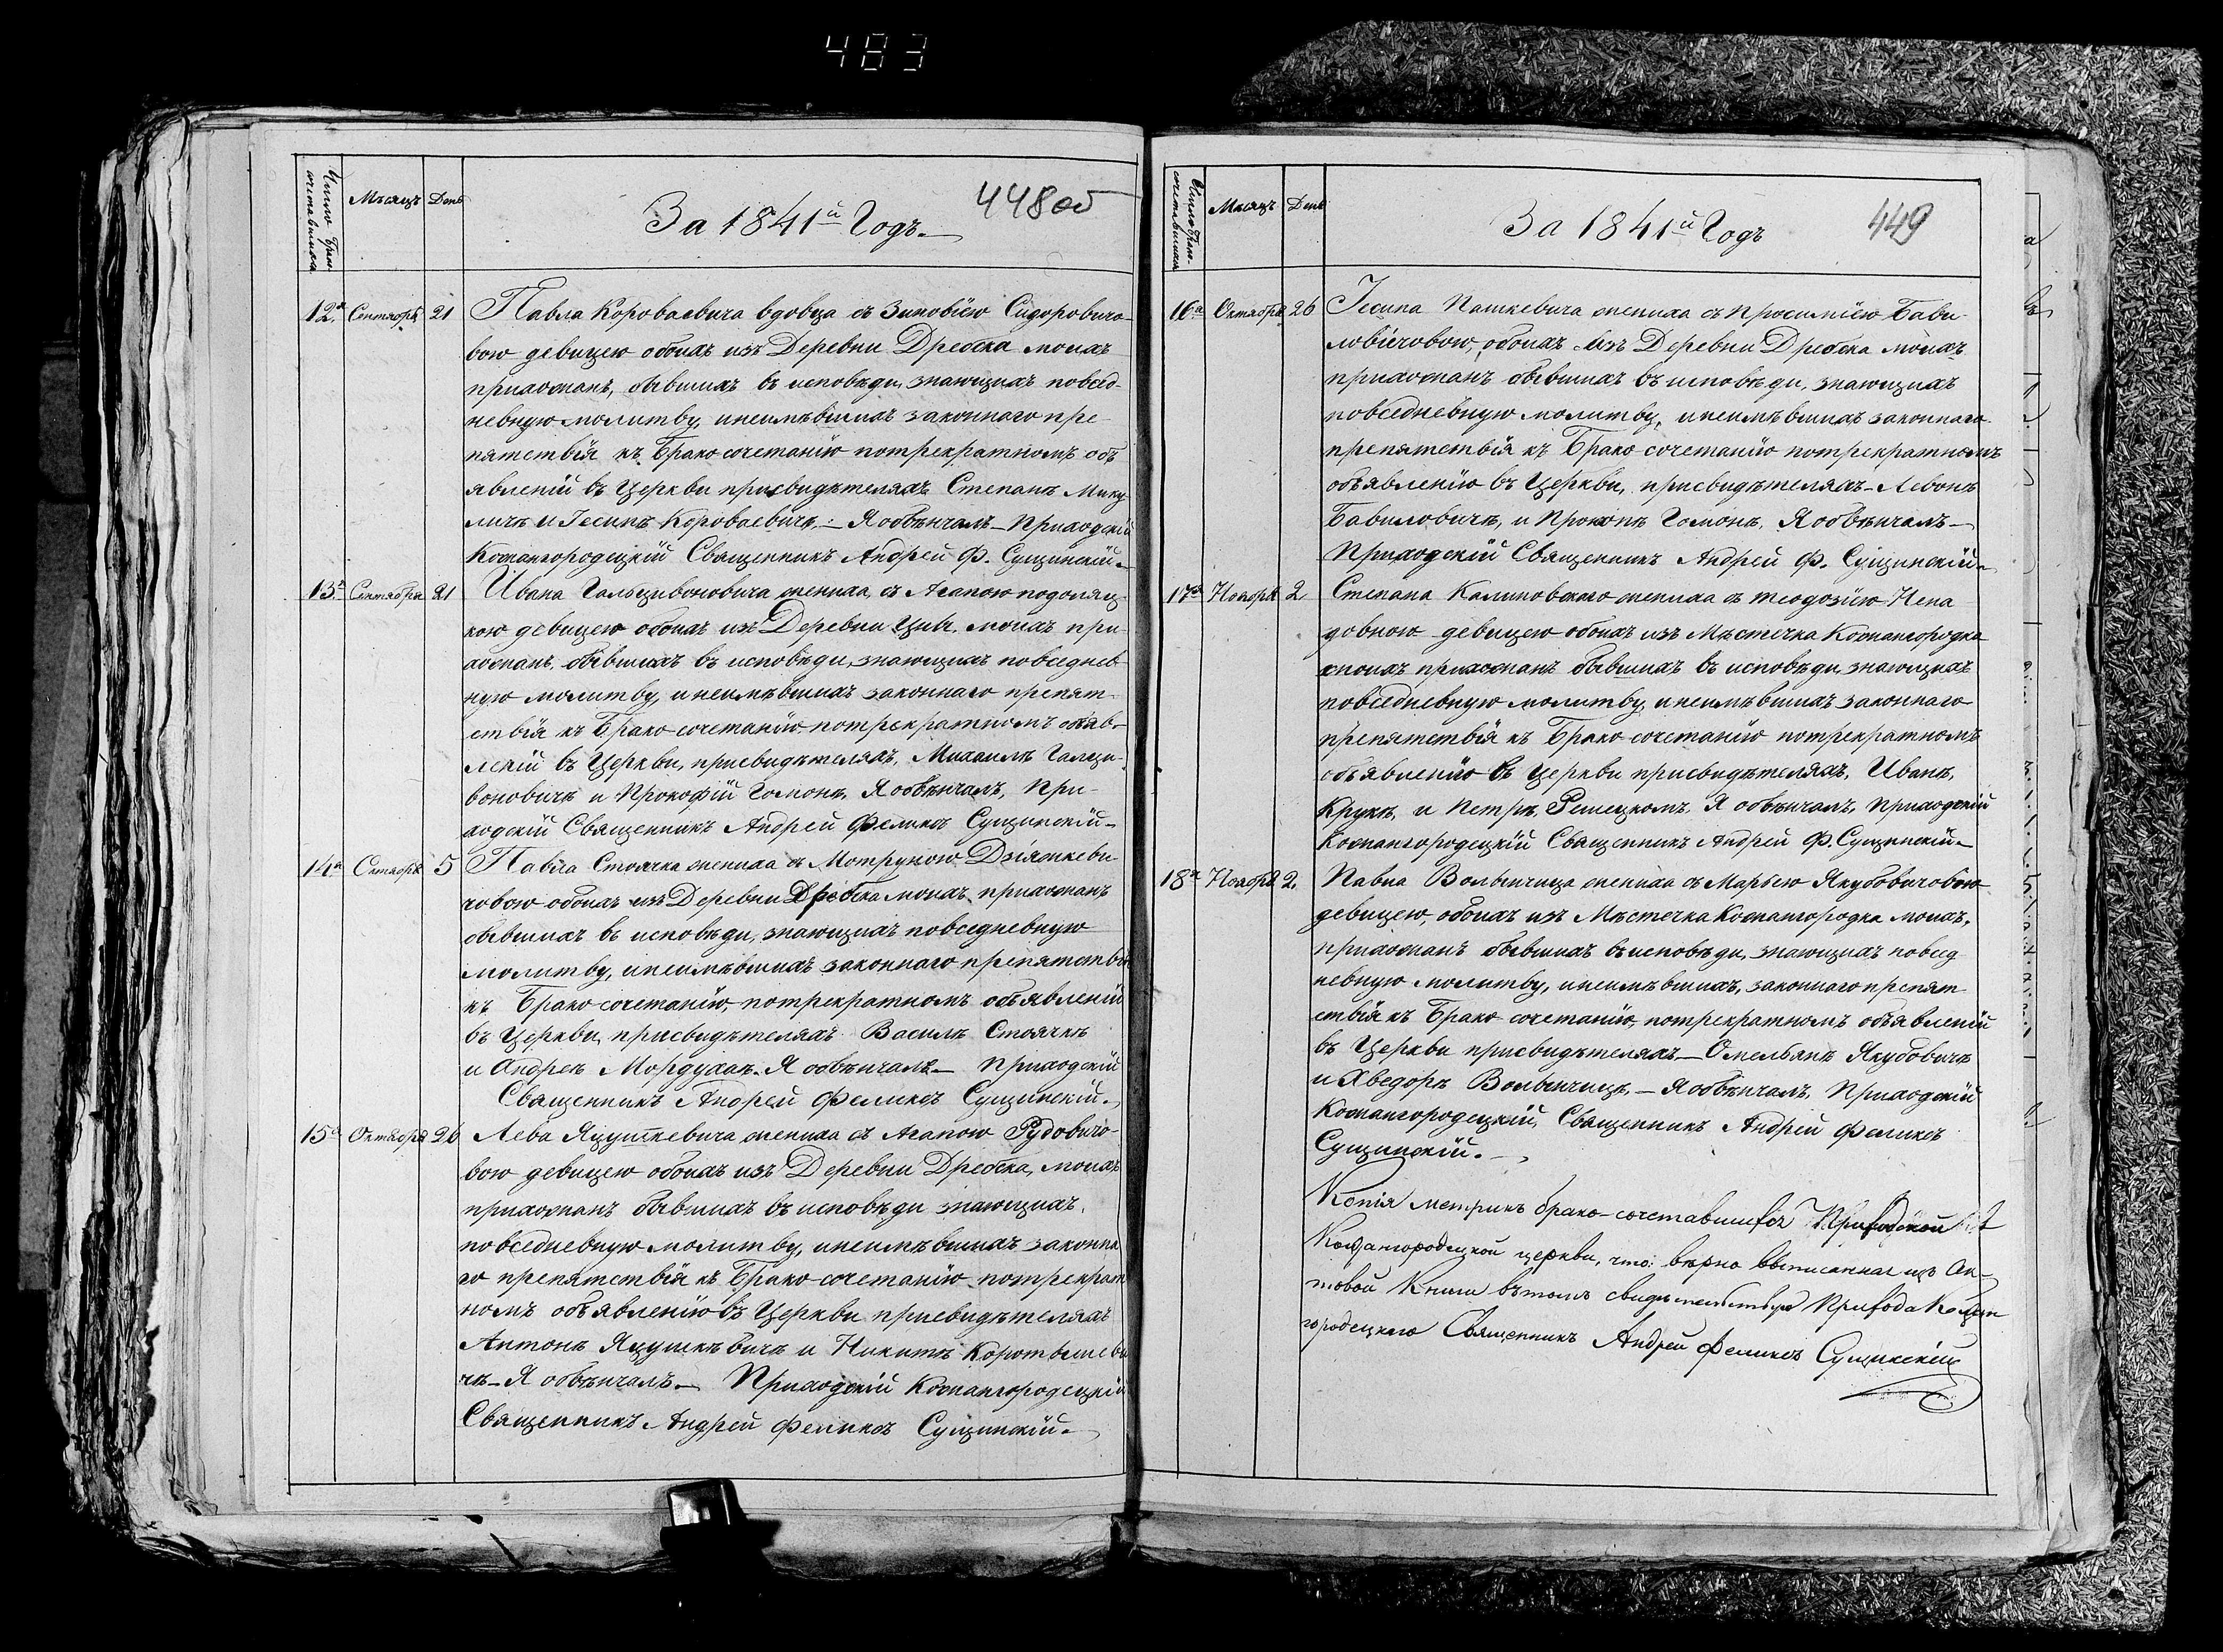 483
Число брако
сочетавшихся
Мѣсяцъ
День
За 1841й Годъ.
448об
12а Сентября 21 Павла Короваевича вдовца съ Зиновіею Сидоровичо-
вою девицею обоихъ изъ Деревни Дребска моихъ
прихожанъ, бывшихъ въ исповѣди, знающихъ повсед-
невную молитву, инеимѣвшихъ законнаго пре-
пятствія къ Брако сочетанію потрекратномъ объ
явленій въ Церкви присвидѣтеляхъ Степанѣ Мику
личѣ и Іосипѣ Короваевичѣ, – Я обвѣнчалъ – Приходскій
Кожангородецкій Священникъ Андрей Ф. Сущинскій.
13а Сентября 21 Ивана Гальцивоновича жениха, съ Агапою подоляц
кою девицею обоихъ изъ Деревни Цны, моихъ при-
хожанъ, бывшихъ въ исповѣди, знающихъ повседнев
ную молитву, инеимѣвшихъ законнаго препят-
ствія къ Брако сочетанію потрекратномъ объяв-
леній въ Церкви, присвидѣтеляхъ, Михаилѣ Гальци-
воновичѣ и Прокофій Гомонѣ, Я обвѣнчалъ, При-
ходскій Священникъ Андрей Феликсъ Сущинскій –
14а Октября 5 Павла Стоячка жениха съ Мотруною Дзіяшкеви-
човою обоихъ изъ Деревни Дребска моихъ прихожанъ
бывшихъ въ исповѣди, знающихъ повседневную
молитву, инеимѣвшихъ законнаго препятствія
къ Брако сочетанію, потрекратномъ объявленій
въ Церкви, присвидѣтеляхъ Василѣ Стоячкѣ
и Андреѣ Мордухаѣ. Я обвѣнчалъ – Приходскій
Священникъ Андрей Феликсъ Сущинскій.
15а Октября 26 Лева Яцушкевича жениха съ Агапою Рудовичо-
вою девицею обоихъ изъ Деревни Дребска, моихъ
прихожанъ бывшихъ въ исповѣди знающихъ,
повседневную молитву, инеимѣвшихъ законна
го препятствія къ Брако сочетанію потрекрат
номъ объявленію въ Церкви присвидѣтеляхъ
Антонѣ Яцушкѣвичѣ и Никитѣ Коротышеви
чѣ – Я обвѣнчалъ – Приходскій Кожангородецкій
Священникъ Андрей Феликсъ Сущинскій.
Число брако-
сочетавшихся
Мѣсяцъ
День
За 1841й Годъ
449
16а Октября 26 Іосипа Пашкевича жениха съ Просимѣю Бави-
ловичовою, обоихъ изъ Деревни Дребска моихъ
прихожанъ бывшихъ въ исповѣди, знающихъ
повседневную молитву, инеимѣвшихъ законнаго
препятствія къ Брако сочетанію потрекратномъ
объявленію въ Церкви, присвидѣтеляхъ – Левонѣ
Бавиловичѣ, и Прокопѣ Гомонѣ, Я обвѣнчалъ –
Приходскій Священникъ Андрей Ф. Сущинскій.
17а Ноября 2 Степана Калиновскаго жениха съ Теодозіею Непа
довною девицею обоихъ изъ Мѣстечка Кожангородка
моихъ прихожанъ бывшихъ въ исповѣди, знающихъ
повседневную молитву, инеимѣвшихъ законнаго
препятствія къ Брако сочетанію потрекратномъ
объявленію въ Церкви присвидѣтеляхъ, Иванѣ,
Крукѣ, и Петрѣ, Решецкомъ, Я обвѣнчалъ, Приходскій
Кожангородецкій Священникъ Андрей Ф. Сущинскій.
18а Ноября 2. Павла Волынчица жениха съ Марьею Якубовичовою
девицею, обоихъ изъ Мѣстечка Кожангородка моихъ,
прихожанъ бывшихъ въисповѣди, знающихъ повсед
невную молитву, инеимѣвшихъ, законнаго препят
ствія къ Брако сочетанію, потрекратномъ объявленій
въ Церкви присвидѣтеляхъ – Омельянѣ Якубовичѣ
и Хведорѣ Волынчицѣ, – Я обвѣнчалъ, Приходскій
Кожангородецкій, Священникъ Андрей Феликсъ
Сущинскій.
Копія метрикъ брако-сочетавшихся Приходской
Кожангородецкой церкви, что вѣрно выписанная изъ Ак-
товой Книги въ томъ свидетельствую Прихода Кожан
городецкаго Священникъ Андрей Феликсъ Сущинскій